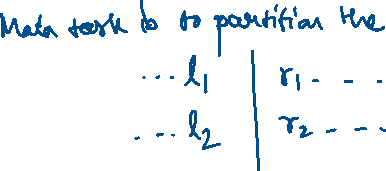 Main task is to partition the
... l₁ | r₁ - - -
... l₂ | r₂ - - -